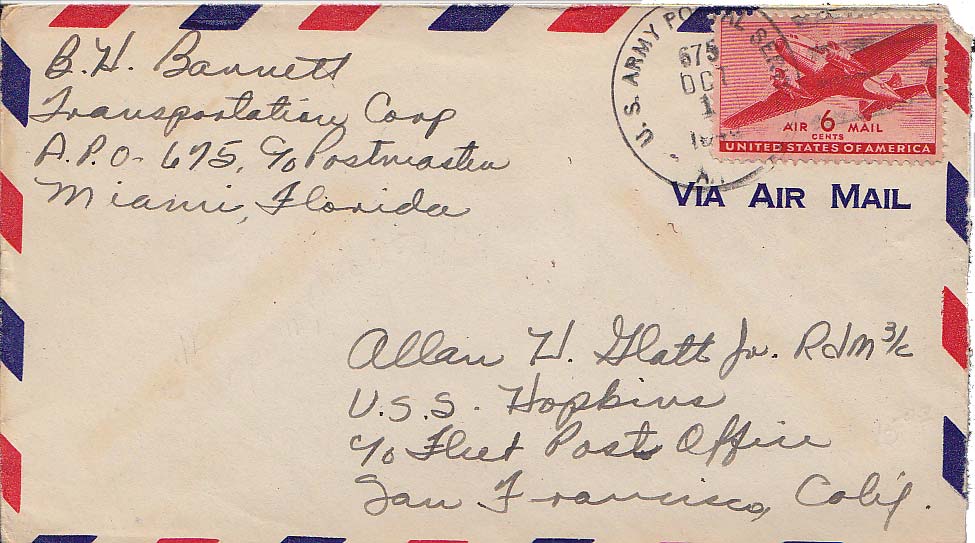 B. H. Barrett
Transportation Corp
A.P.O. 675, c/o Postmaster
Miami, Florida
U.S. ARMY POSTAL SERVICE
675
OCT
1
AIR 6 MAIL
CENTS
UNITED STATES OF AMERICA
VIA AIR MAIL
Allan H. Glatt Jr. RdM 3/c
U.S.S. Hopkins
c/o Fleet Post Office
San Francisco, Calif.